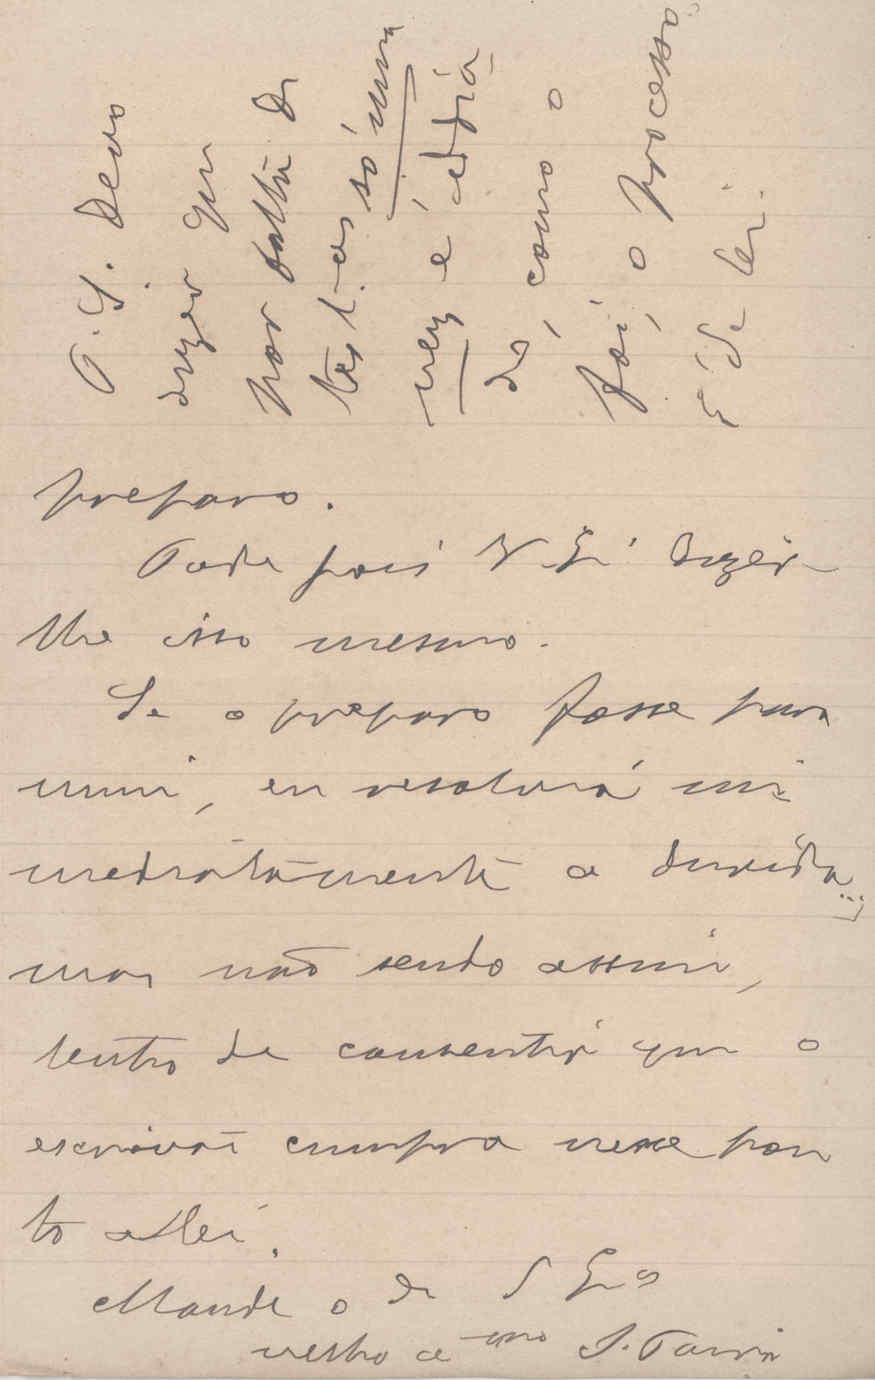 preparo.
Pode pois V. Ex.ª dizer-
lhe isso mesmo.
Se o preparo fosse para
mim, eu resolveria im
mediatamente a duvida;
mas não sendo assim,
tenho de consentir que o
escrivão cumpra nesse pon
to a lei.
Mande o de V Ex.ª
P.S. Devo
dizer que
por falta de
test.as só uma
vez é addia
do, como o
foi, o processo.
É de lei.